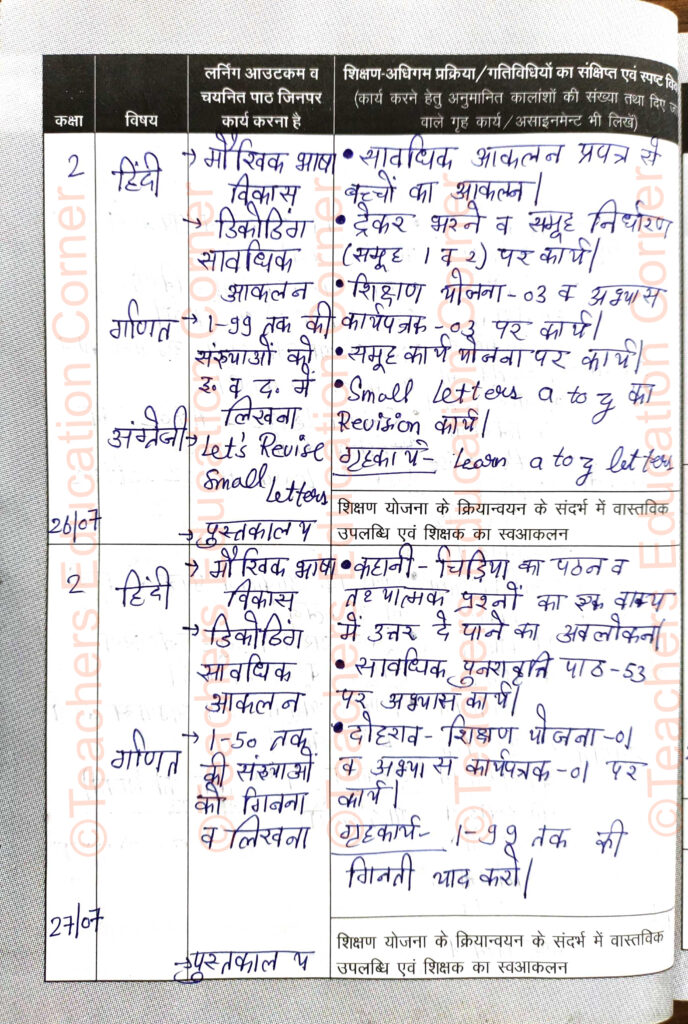 कक्षा
विषय
लर्निंग आउटकम व
चयनित पाठ जिनपर
कार्य करना है
शिक्षण-अधिगम प्रक्रिया/गतिविधियों का संक्षिप्त एवं स्पष्ट
(कार्य करने हेतु अनुमानित कालांशों की संख्या तथा दिए
वाले गृह कार्य/असाइनमेंट भी लिखें)
2
हिंदी
→ मौखिक भाषा
विकास
→ डिकोडिंग
सावधिक
आकलन
• सावधिक आकलन प्रपत्र से
बच्चों का आकलन।
• ट्रेकर भरने व समूह निर्धारण
(समूह 1 व 2) पर कार्य।
गणित
→ 1-99 तक की
संख्याओं को
इ. व द. में
लिखना
• शिक्षण योजना-03 व अभ्यास
कार्यपत्रक-03 पर कार्य।
• समूह कार्य योजना पर कार्य।
अंग्रेजी
→ Let's Revise
Small
letters
• Small letters a to z का
Revision कार्य।
गृहकार्य- Learn a to z letters
26/07
→ पुस्तकालय
शिक्षण योजना के क्रियान्वयन के संदर्भ में वास्तविक
उपलब्धि एवं शिक्षक का स्वआकलन
2
हिंदी
→ मौखिक भाषा
विकास
→ डिकोडिंग
सावधिक
आकलन
• कहानी- चिड़िया का पठन व
तथ्यात्मक प्रश्नों का एक वाक्य
में उत्तर दे पाने का अवलोकन।
• सावधिक पुनरावृत्ति पाठ-53
पर अभ्यास कार्य।
गणित
→ 1-50 तक
की संख्याओं
को गिनना
व लिखना
• दोहराव- शिक्षण योजना-01
व अभ्यास कार्यपत्रक-01 पर
कार्य।
गृहकार्य- 1-99 तक की
गिनती याद करो।
27/07
→ पुस्तकालय
शिक्षण योजना के क्रियान्वयन के संदर्भ में वास्तविक
उपलब्धि एवं शिक्षक का स्वआकलन
©Teachers Education Corner
©Teachers Education Corner
©Teachers Education Corner
©Teachers Education Corner
©Teachers Education Corner